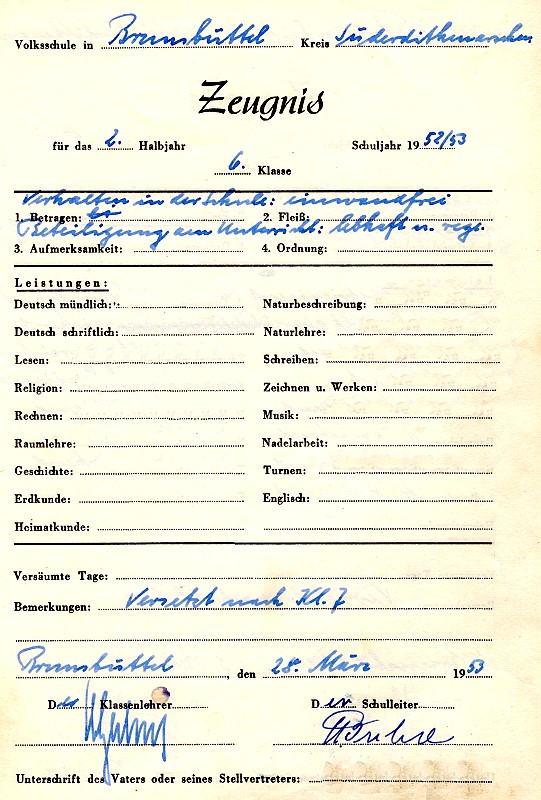 Volksschule in Brunsbüttel Kreis Süderdithmarschen
Zeugnis
für das 2. Halbjahr Schuljahr 1952/53
6. Klasse
Verhalten in der Schule: einwandfrei
1. Betragen: 2. Fleiß:
Beteiligung am Unterricht: lebhaft u. rege.
3. Aufmerksamkeit: 4. Ordnung:
Leistungen:
Deutsch mündlich: Naturbeschreibung:
Deutsch schriftlich: Naturlehre:
Lesen: Schreiben:
Religion: Zeichnen u. Werken:
Rechnen: Musik:
Raumlehre: Nadelarbeit:
Geschichte: Turnen:
Erdkunde: Englisch:
Heimatkunde:
Versäumte Tage:
Bemerkungen: Versetzt nach Kl. 7
Brunsbüttel, den 28. März 1953
Der Klassenlehrer Der Schulleiter
Unterschrift des Vaters oder seines Stellvertreters: